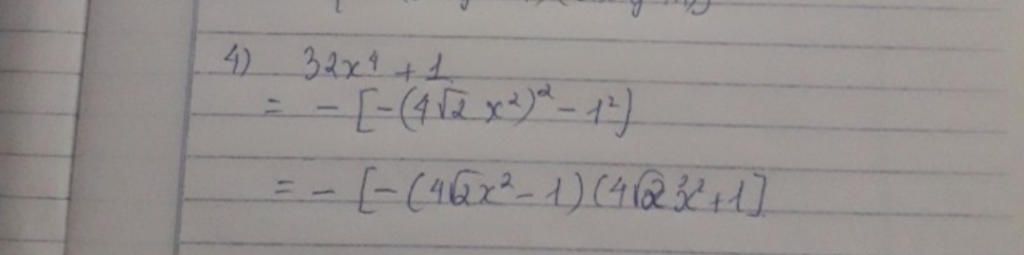 4) 32x⁴ + 1
= - [-(4√2 x²)² - 1²]
= - [-(4√2x² - 1)(4√2x² + 1]